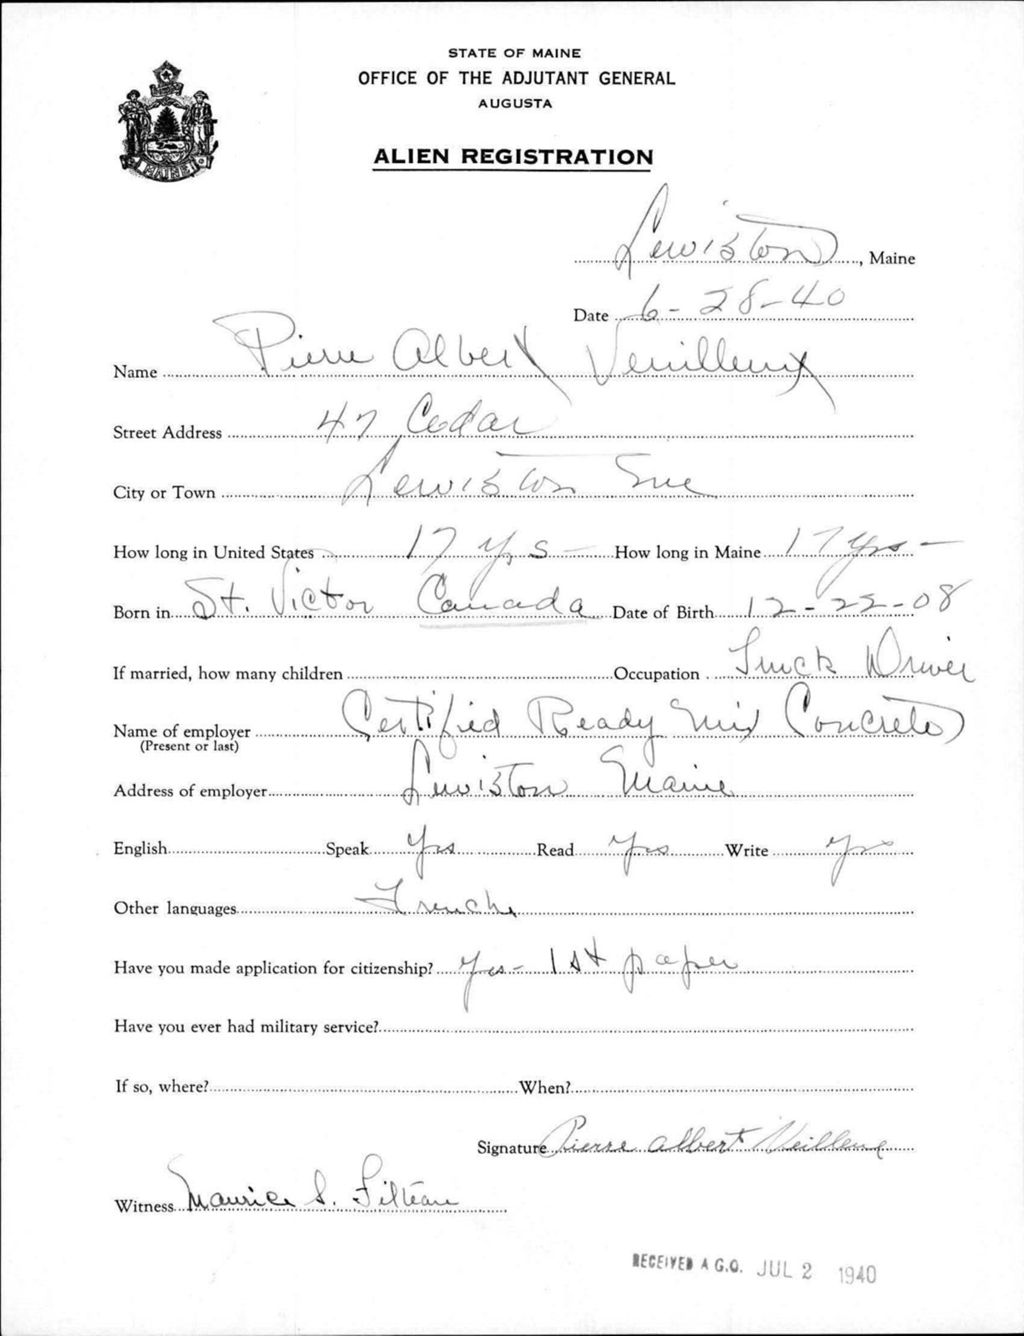 STATE OF MAINE
OFFICE OF THE ADJUTANT GENERAL
AUGUSTA
ALIEN REGISTRATION
MAINE
Lewiston, Maine
Date 6-28-40
Name Pierre Albert Veuilleux
Street Address 47 Cedar
City or Town Lewiston Me
How long in United States 17 yrs - How long in Maine 17 yrs -
Born in St. Victor Canada Date of Birth 12-22-08
If married, how many children Occupation Truck Driver
Name of employer Certified Ready Mix Concrete
(Present or last)
Address of employer Lewiston Maine
English Speak Yes Read Yes Write Yes
Other languages French
Have you made application for citizenship? Yes - 1st paper
Have you ever had military service?
If so, where? When?
Signature Pierre Albert Veilleux
Witness Maurice S. Filteau
RECEIVED A.G.O. JUL 2 1940